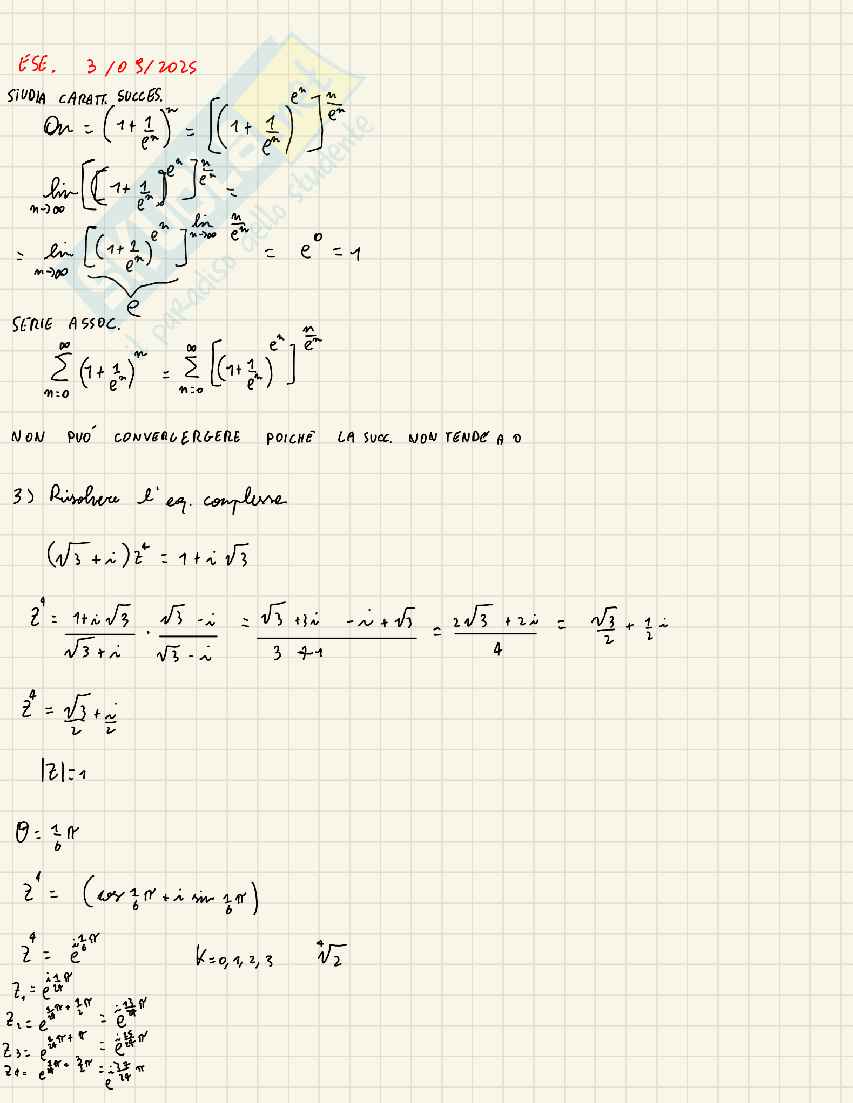 ESE. 3/09/2025
STUDIA CARATT. SUCCES.
an = (1+1/eⁿ)ⁿ = [(1+1/eⁿ)^eⁿ]^(n/eⁿ)
lim n→∞ [(1+1/eⁿ)^eⁿ]^(n/eⁿ) =
= lim n→∞ [(1+1/eⁿ)^eⁿ]^(lim n→∞ n/eⁿ) = e⁰ = 1
e
SERIE ASSOC.
∞∑n=0 (1+1/eⁿ)ⁿ = ∞∑n=0 [(1+1/eⁿ)^eⁿ]^(n/eⁿ)
NON PUO' CONVERGERGERE POICHÈ LA SUCC. NON TENDE A 0
3) Risolvere l'eq. complessa
(√3+i)z⁴ = 1+i√3
z⁴ = (1+i√3)/(√3+i) · (√3-i)/(√3-i) = (√3+3i -i+√3)/(3+1) = (2√3+2i)/4 = √3/2 + 1/2 i
z⁴ = √3/2 + i/2
|z|=1
θ = 1/6 π
z⁴ = (cos 1/6 π + i sin 1/6 π)
z⁴ = e^(i 1/6 π) K=0,1,2,3 ⁴√2
z₁ = e^(i 1/24 π)
z₂ = e^(1/24 π + 1/2 π) = e^(i 13/24 π)
z₃ = e^(1/24 π + π) = e^(i 25/24 π)
z₄ = e^(1/24 π + 3/2 π) = e^(i 37/24 π)
SKUOLA.net
il paradiso dello studente